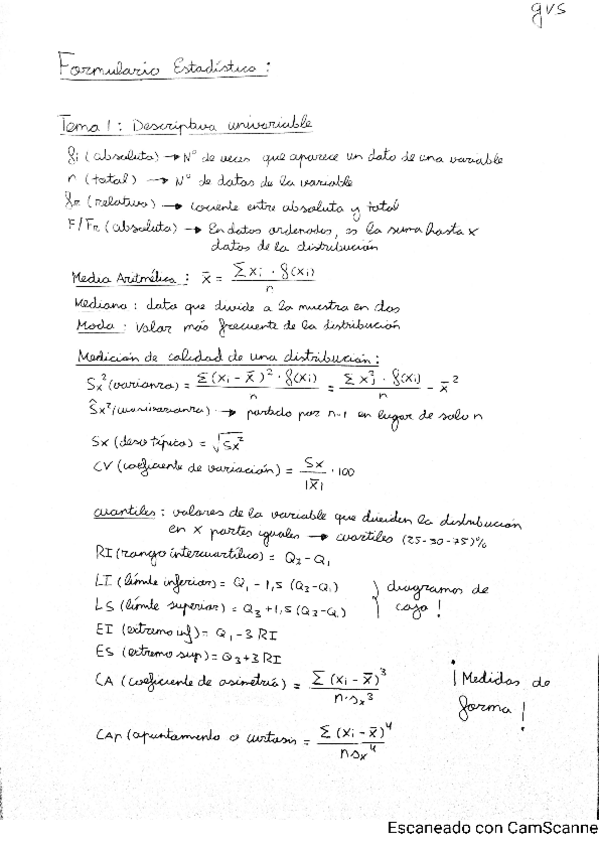 gvs
Formulario Estadística:
Tema 1: Descriptiva univariable
fi (absoluta) → Nº de veces que aparece un dato de una variable
n (total) → Nº de datos de la variable
fr (relativa) → cociente entre absoluta y total
F/Fr (absoluta) → En datos ordenados, es la suma hasta x
datos de la distribución
Media Aritmética: x̄ = Σxi · f(xi) / n
Mediana: dato que divide a la muestra en dos
Moda: valor más frecuente de la distribución
Medición de calidad de una distribución:
Sx² (varianza) = Σ(xi - x̄)² · f(xi) / n = Σxi² · f(xi) / n - x̄²
Ŝx² (cuasivarianza) → partido por n-1 en lugar de solo n
Sx (desv típica) = √Sx²
CV (coeficiente de variación) = Sx / |x̄| · 100
cuantiles: valores de la variable que dividen la distribución
en x partes iguales → cuartiles (25-30-75)%
RI (rango intercuartílico) = Q3 - Q1
LI (límite inferior) = Q1 - 1,5 (Q3-Q1) } diagramas de
LS (límite superior) = Q3 + 1,5 (Q3-Q1) caja!
EI (extremo inf) = Q1 - 3 RI
ES (extremo sup) = Q3 + 3 RI
CA (coeficiente de asimetría) = Σ(xi - x̄)³ / n·sx³ ¡Medidas de
forma!
CAp (apuntamiento o curtosis = Σ(xi - x̄)⁴ / nsx⁴
Escaneado con CamScanne